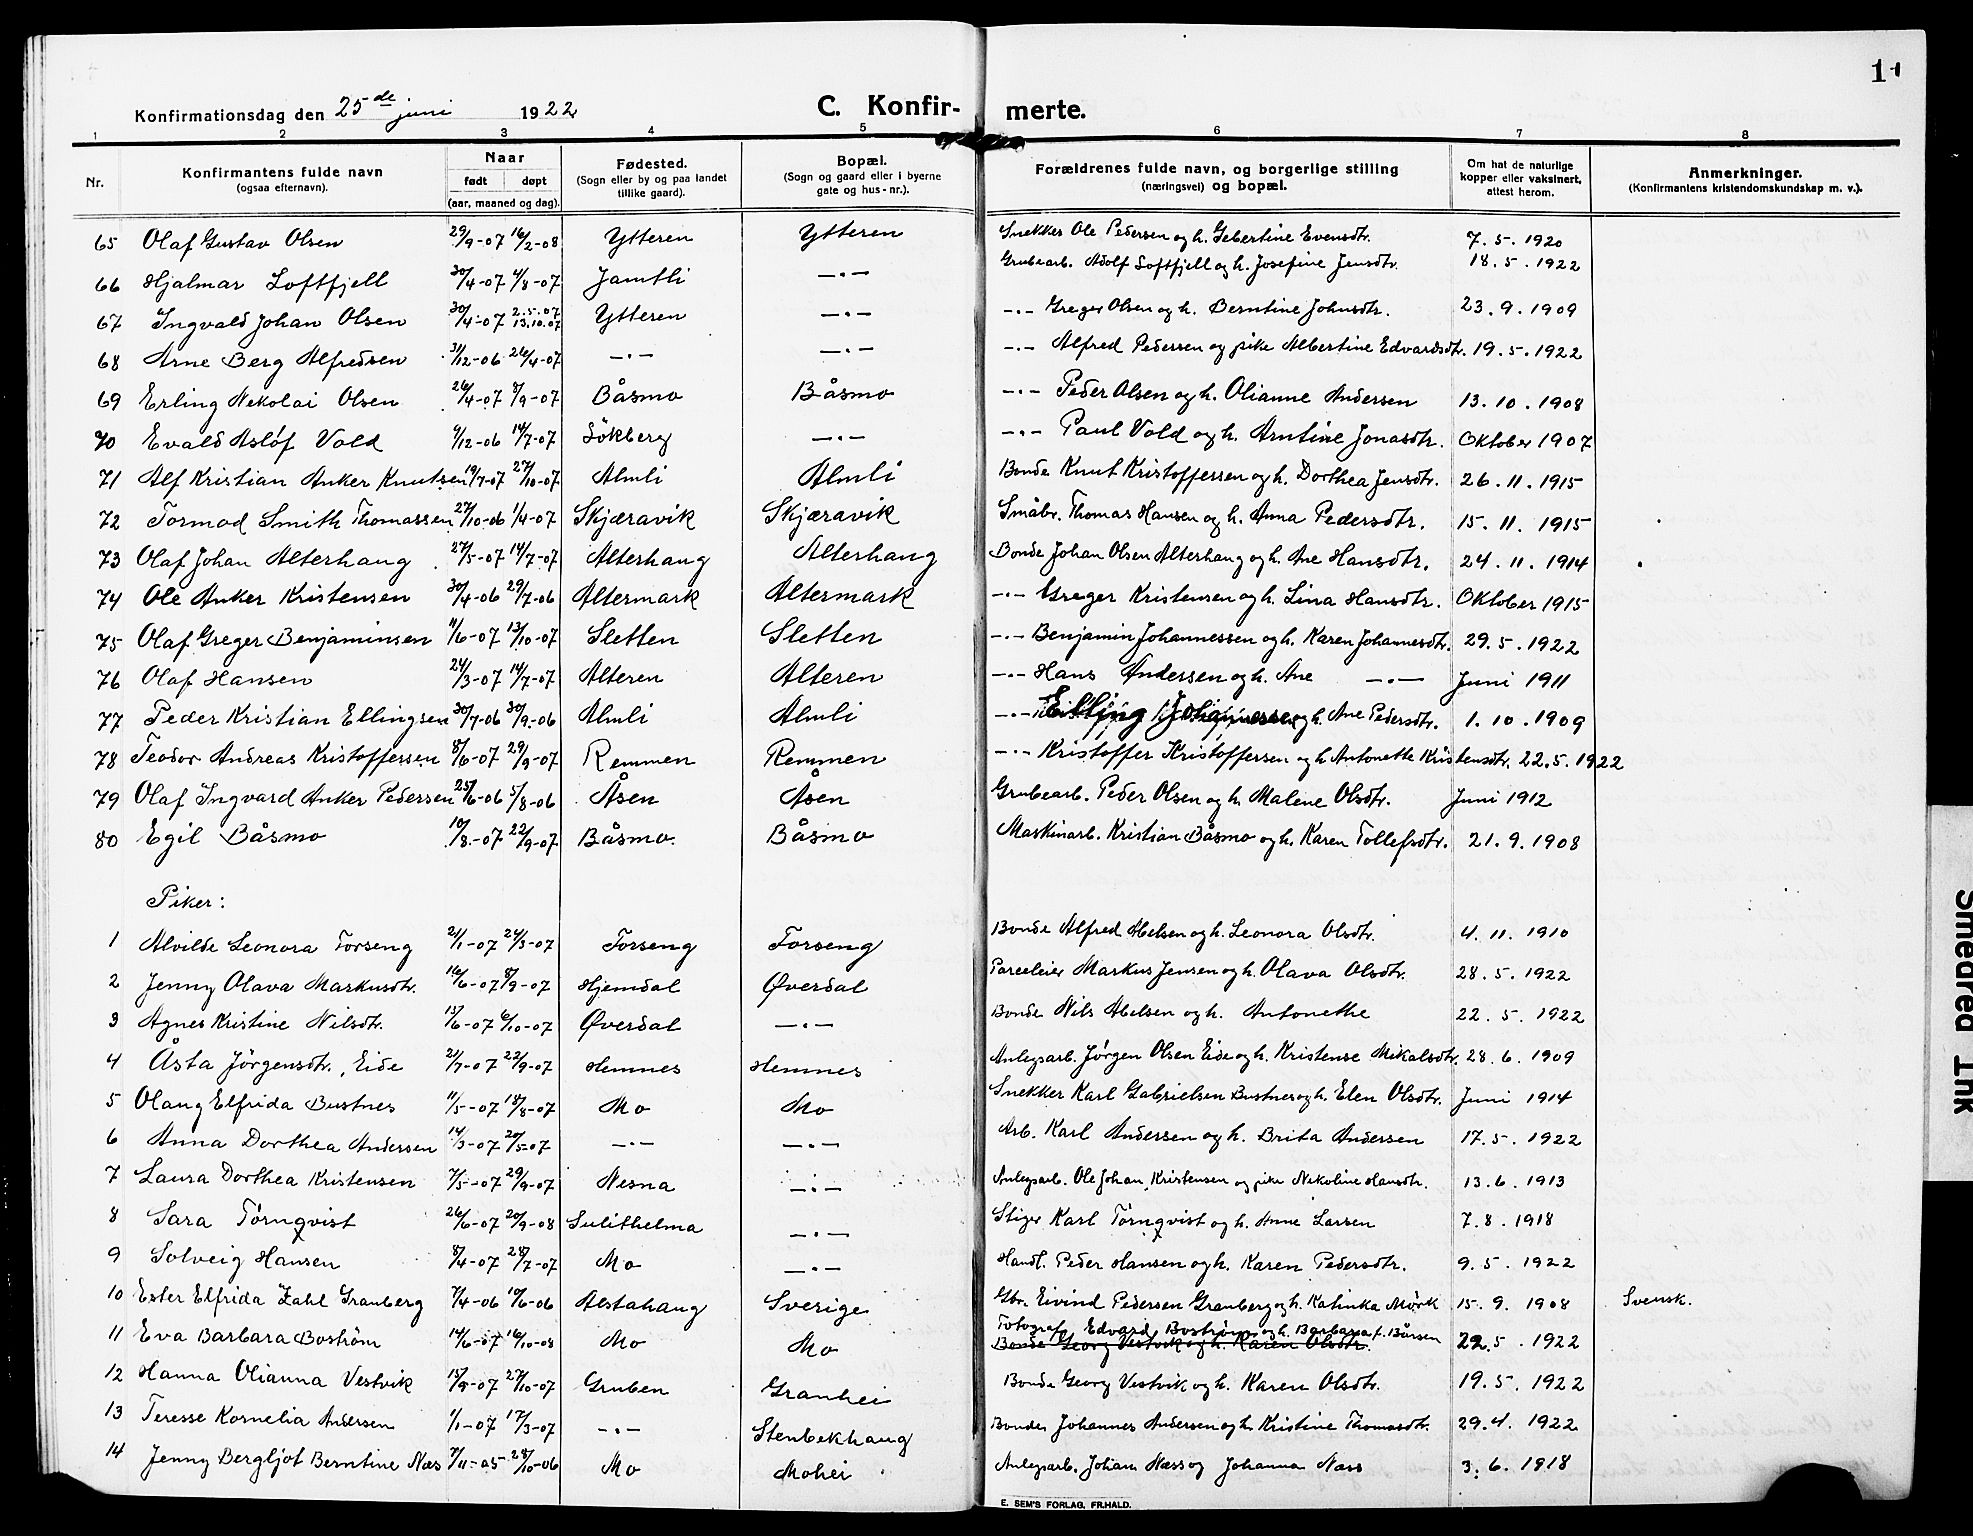 Konfirmationsdag den 25de juni 1922
C. Konfir- merte.
11
1 2 3 4 5 6 7 8
Nr. | Konfirmantens fulde navn (ogsaa efternavn). | Naar født døpt (aar, maaned og dag). | Fødested. (Sogn eller by og paa landet tillike gaard). | Bopæl. (Sogn og gaard eller i byerne gate og hus-nr.). | Forældrenes fulde navn, og borgerlige stilling (næringsvei) og bopæl. | Om hat de naturlige kopper eller vaksinert, attest herom. | Anmerkninger. (Konfirmantens kristendomskundskap m. v.).
65 Olaf Gustav Olsen 29/9-07 16/2-08 Ytteren Ytteren Snekker Ole Pedersen og h. Gebertine Evensdtr. 7.5.1920
66 Hjalmar Loftfjell 30/4-07 4/8-07 Jamtli —"— Grubearb. Adolf Loftfjell og h. Josefine Jensdtr. 18.5.1922
67 Ingvald Johan Olsen 30/4-07 2.5.07 13.10.07 Ytteren —"— —"— Greger Olsen og h. Berntine Johnsdtr. 23.9.1909
68 Arne Berg Alfredsen 31/12-06 26/4-07 —"— —"— —"— Alfred Pedersen og pike Albertine Edvardsdtr. 19.5.1922
69 Erling Nekolai Olsen 26/4-07 8/9-07 Båsmo Båsmo —"— Peder Olsen og h. Olianne Andersen 13.10.1908
70 Evald Asløf Vold 9/12-06 14/7-07 Sökberg —"— —"— Paul Vold og h. Arntine Jonasdtr. Oktober 1907
71 Alf Kristian Anker Knutsen 19/7-07 27/10-07 Almli Almli Bonde Knut Kristoffersen og h. Dorthea Jensdtr. 26.11.1915
72 Tormod Smith Thomassen 27/10-06 1/4-07 Skjæravik Skjæravik Småbr. Thomas Hansen og h. Anna Pedersdtr. 15.11.1915
73 Olaf Johan Alterhaug 27/5-07 14/7-07 Alterhaug Alterhaug Bonde Johan Olsen Alterhaug og h. Ane Hansdtr. 24.11.1914
74 Ole Anker Kristensen 30/4-06 29/7-06 Altermark Altermark —"— Greger Kristensen og h. Lina Hansdtr. Oktober 1915
75 Olaf Greger Benjaminsen 11/6-07 13/10-07 Sletten Sletten —"— Benjamin Johannessen og h. Karen Johannesdtr. 29.5.1922
76 Olaf Hansen 24/3-07 14/7-07 Alteren Alteren —"— Hans Andersen og h. Ane —"— Juni 1911
77 Peder Kristian Ellingsen 30/7-06 30/9-06 Almli Almli —"— Elling Johannessen og h. Ane Pedersdtr. 1.10.1909
78 Teodor Andreas Kristoffersen 8/6-07 29/9-07 Remmen Remmen —"— Kristoffer Kristoffersen og h. Antonette Kristensdtr. 22.5.1922
79 Olaf Ingvard Anker Pedersen 25/6-06 5/8-06 Åsen Åsen Grubearb. Peder Olsen og h. Malene Olsdtr. Juni 1912
80 Egil Båsmo 10/8-07 22/9-07 Båsmo. Båsmo Maskinarb. Kristian Båsmo og h. Karen Tollefsdtr. 21.9.1908
Piker:
1 Alvilde Leonora Forseng 2/1-07 24/3-07 Forseng Forseng Bonde Alfred Abelsen og h. Leonora Olsdtr. 4.11.1910
2 Jenny Olava Markusdtr. 16/6-07 8/9-07 Hjemdal Øverdal Parceleier Markus Jensen og h. Olava Olsdtr. 28.5.1922
3 Agnes Kristine Nilsdtr. 15/6-07 6/10-07 Øverdal —"— Bonde Nils Abelsen og h. Antonethe 22.5.1922
4 Åsta Jörgensdtr., Eide 21/7-07 22/9-07 Hemnes Hemnes Anlegsarb. Jörgen Olsen Eide og h. Kristense Mikalsdtr. 28.6.1909
5 Olaug Elfrida Bustnes 11/5-07 18/8-07 Mo Mo Snekker Karl Gabrielsen Bustnes og h. Elen Olsdtr. Juni 1914
6 Anna Dorthea Andersen 14/3-07 20/5-07 —"— —"— Arb. Karl Andersen og h. Brita Andersen 17.5.1922
7 Laura Dorthea Kristensen 7/5-07 29/9-07 Nesna —"— Anlegsarb. Ole Johan Kristensen og pike Nikoline Hansdtr. 13.6.1913
8 Sara Törnqvist 26/6-07 20/9-08 Sulithelma —"— Stiger Karl Törnqvist og h. Anne Larsen 7.8.1918
9 Solveig Hansen 8/4-07 28/7-07 Mo —"— Handl. Peder Hansen og h. Karen Pedersdtr. 9.5.1922
10 Ester Elfrida Zahl Granberg 7/4-06 10/6-06 Alstahaug Sverige Gbr. Eivind Pedersen Granberg og h. Katinka Mörk 15.9.1908 Svensk.
11 Eva Barbara Boström 14/6-07 16/10-08 Mo Mo Fotograf Edvard Boström og h. Barbara f. Båvsen 22.5.1922
Bonde Georg Vestvik og h. Karen Olsdtr.
12 Hanna Olianna Vestvik 15/9-07 27/10-07 Gruben Granhei Bonde Georg Vestvik og h. Karen Olsdtr. 19.5.1922
13 Teresse Kornelia Andersen 1/1-07 17/3-07 —"— Stenbekhaug Bonden Johannes Andersen og h. Kristine Thomasdtr. 29.4.1922
14 Jenny Bergljot Berntine Næs 7/11-05 28/10-06 Mo Mohei Anlegsarb. Johan Næss og Johanna Næss 3.6.1918
E. SEM'S FORLAG, FR.HALD.
Smeared Ink